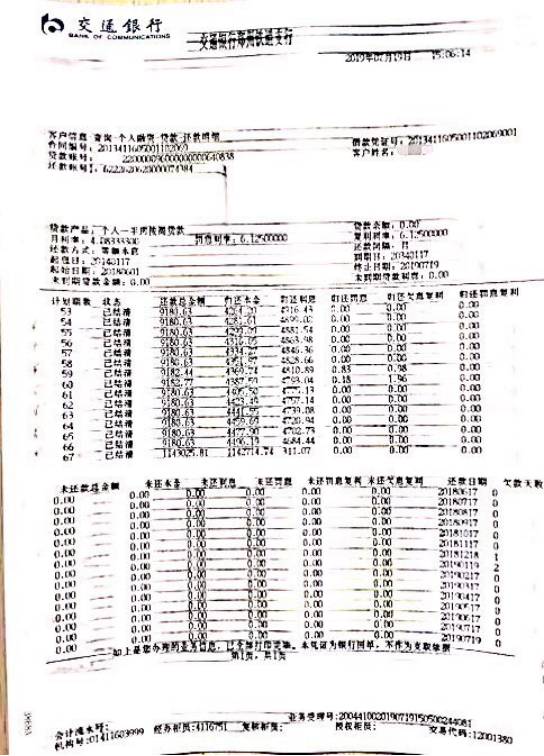 交通银行
BANK OF COMMUNICATIONS
交通银行郑州铁道支行
2019年07月19日 15:06:14
客户信息-查询-个人融资-贷款-还款明细
合同编号: 借款凭证号:
贷款账号: 客户姓名:
还款账号:
贷款产品: 个人一手房按揭贷款 贷款余额: 0.00
月利率: 4.08333300 罚息利率: 6.12500000 复利利率: 6.12500000
还款方式: 等额本息 还款间隔: 月
起息日: 20140117 到期日: 20340117
起始日期: 20180601 终止日期: 20190719
未到期贷款金额: 0.00 未到期贷款利息: 0.00
计划期数 状态 还款总金额 归还本金 归还利息 归还罚息 归还欠息复利 归还罚息复利
53 已结清 9180.63 4916.43 0.00 0.00 0.00
54 已结清 9180.63 4899.02 0.00 0.00 0.00
55 已结清 9180.63 4881.54 0.00 0.00 0.00
56 已结清 9180.63 4863.98 0.00 0.00 0.00
57 已结清 9180.63 4846.36 0.00 0.00 0.00
58 已结清 9180.63 4828.66 0.00 0.00 0.00
59 已结清 9182.44 4369.74 4810.89 0.83 0.98 0.00
60 已结清 9182.77 4387.59 4793.04 0.18 1.96 0.00
61 已结清 9180.63 4405.50 4775.13 0.00 0.00 0.00
62 已结清 9180.63 4423.49 4757.14 0.00 0.00 0.00
63 已结清 9180.63 4441.55 4739.08 0.00 0.00 0.00
64 已结清 9180.63 4459.69 4720.94 0.00 0.00 0.00
65 已结清 9180.63 4477.90 4702.73 0.00 0.00 0.00
66 已结清 9180.63 4496.19 4684.44 0.00 0.00 0.00
67 已结清 1143025.81 1142714.74 311.07 0.00 0.00 0.00
未还款总金额 未还本金 未还利息 未还罚息 未还罚息复利 未还欠息复利 还款日期 欠款天数
0.00 0.00 0.00 0.00 0.00 0.00 20180617 0
0.00 0.00 0.00 0.00 0.00 0.00 20180717 0
0.00 0.00 0.00 0.00 0.00 0.00 20180817 0
0.00 0.00 0.00 0.00 0.00 0.00 20180917 0
0.00 0.00 0.00 0.00 0.00 0.00 20181017 0
0.00 0.00 0.00 0.00 0.00 0.00 20181117 0
0.00 0.00 0.00 0.00 0.00 0.00 20181218 1
0.00 0.00 0.00 0.00 0.00 0.00 20190119 2
0.00 0.00 0.00 0.00 0.00 0.00 20190217 0
0.00 0.00 0.00 0.00 0.00 0.00 20190317 0
0.00 0.00 0.00 0.00 0.00 0.00 20190417 0
0.00 0.00 0.00 0.00 0.00 0.00 20190517 0
0.00 0.00 0.00 0.00 0.00 0.00 20190617 0
0.00 0.00 0.00 0.00 0.00 0.00 20190717 0
0.00 0.00 0.00 0.00 0.00 0.00 20190719 0
如上是您办理的业务信息, 已全部打印完毕。本凭证为银行回单, 不作为支取依据
第1页, 共1页
业务受理号: 
会计流水号: 授权柜员: 交易代码: 12001380
机构号: 01411603999 经办柜员: 4116751 复核柜员: